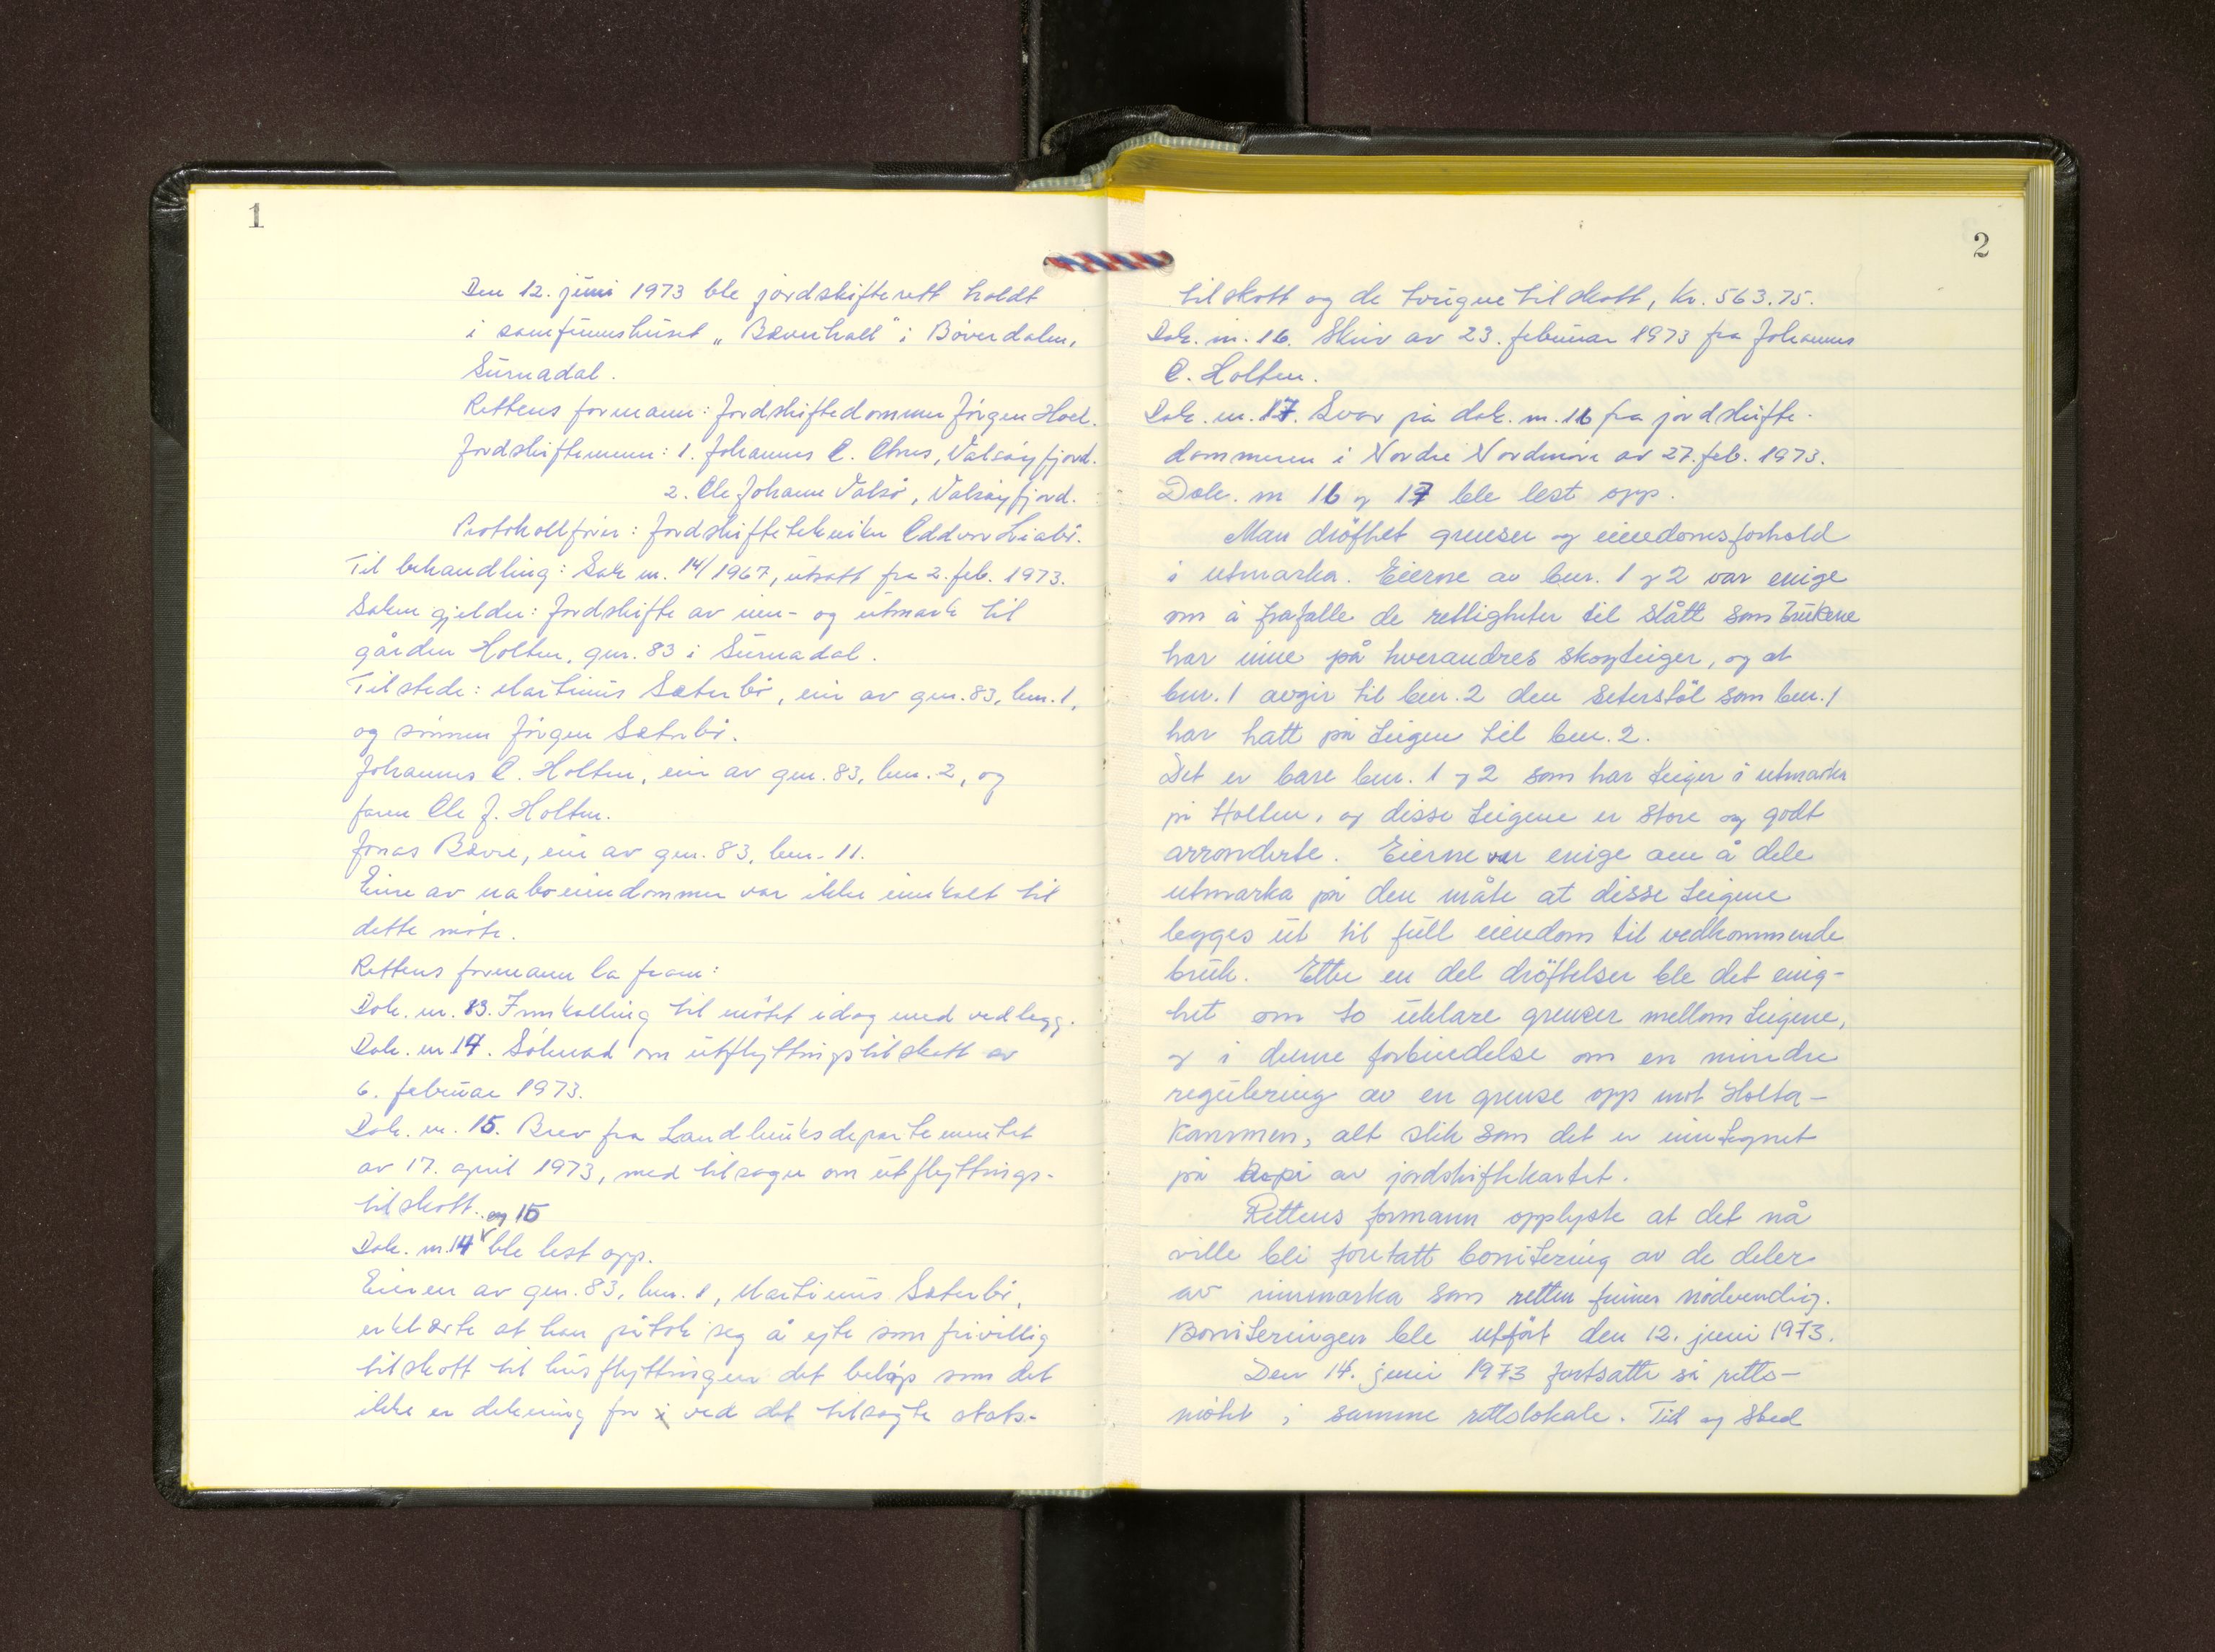 1
Den 12. juni 1973 ble jordskifterett holdt
i samfunnshuset „Bæverhall" i Bøverdalen,
Surnadal.
Rettens formann: Jordskiftedommer Jörgen Hoel.
Jordskiftemenn: 1. Johannes O. Otnes, Valsöyfjord.
2. Ole Johann Valsö, Valsöyfjord.
Protokollförer: Jordskiftetekniker Oddvar Liabö.
Til behandling: Sak nr. 14/1967, utsatt fra 2. feb. 1973.
Saken gjelder: Jordskifte av inn- og utmark til
gården Holten, gnr. 83 i Surnadal.
Tilstede: Martinus Sæterbö, eier av gnr. 83, bnr. 1,
og sönnen Jörgen Sæterbö.
Johannes O. Holten, eier av gnr. 83, bnr. 2, og
faren Ole J. Holten.
Jonas Bævre, eier av gnr. 83, bnr. 11.
Eiere av naboeiendommer var ikke innkalt til
dette möte.
Rettens formann la fram:
Dok. nr. 13. Innkalling til mötet idag med vedlegg.
Dok. nr 14. Söknad om utflyttingstilskott av
6. februar 1973.
Dok. nr. 15. Brev fra Landbruksdepartementet
av 17. april 1973, med tilsagn om utflyttings-
tilskott.
og 15
Dok. nr. 14 ble lest opp.
Eieren av gnr. 83, bnr. 1, Martinus Sæterbö,
erklærte at han påtok seg å yte som frivillig
tilskott til husflyttingen det belöp som det
ikke er dekning for i ved det tilsagte stats-
2
tilskott og de tvungne tilskott, kr. 563.75.
Dok. nr. 16. Skriv av 23. februar 1973 fra Johannes
O. Holten.
Dok. nr. 17. Svar på dok. nr. 16 fra jordskifte-
dommeren i Nordre Nordmöre av 27. feb. 1973.
Dok. nr 16 og 17 ble lest opp.
Man dröftet grenser og eiendomsforhold
i utmarka. Eierne av bnr. 1 og 2 var enige
om å frafalle de rettigheter til slått som brukene
har inne på hverandres skogteiger, og at
bnr. 1 avgir til bnr. 2 den seterstöl som bnr. 1
har hatt på teigen til bnr. 2.
Det er bare bnr. 1 og 2 som har teiger i utmarka
på Holten, og disse teigene er store og godt
arronderte. Eierne var enige om å dele
utmarka på den måte at disse teigene
legges ut til full eiendom til vedkommende
bruk. Etter en del dröftelser ble det enig-
het om to uklare grenser mellom teigene,
og i denne forbindelse om en mindre
regulering av en grense opp mot Holta-
kammen, alt slik som det er inntegnet
på kopi av jordskiftekartet.
Rettens formann opplyste at det nå
ville bli foretatt bonitering av de deler
av innmarka som retten finner nödvendig.
Boniteringen ble utfört den 12. juni 1973.
Den 14. juni 1973 fortsatte så retts-
mötet i samme rettslokale. Tid og sted